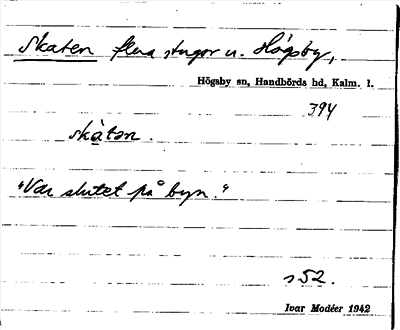 Skaten flera stugor u. Högsby,
Högsby sn, Handbörds hd, Kalm. l.
394
skàtən.
"Var slutet på byn."
s 52.
Ivar Modéer 1942